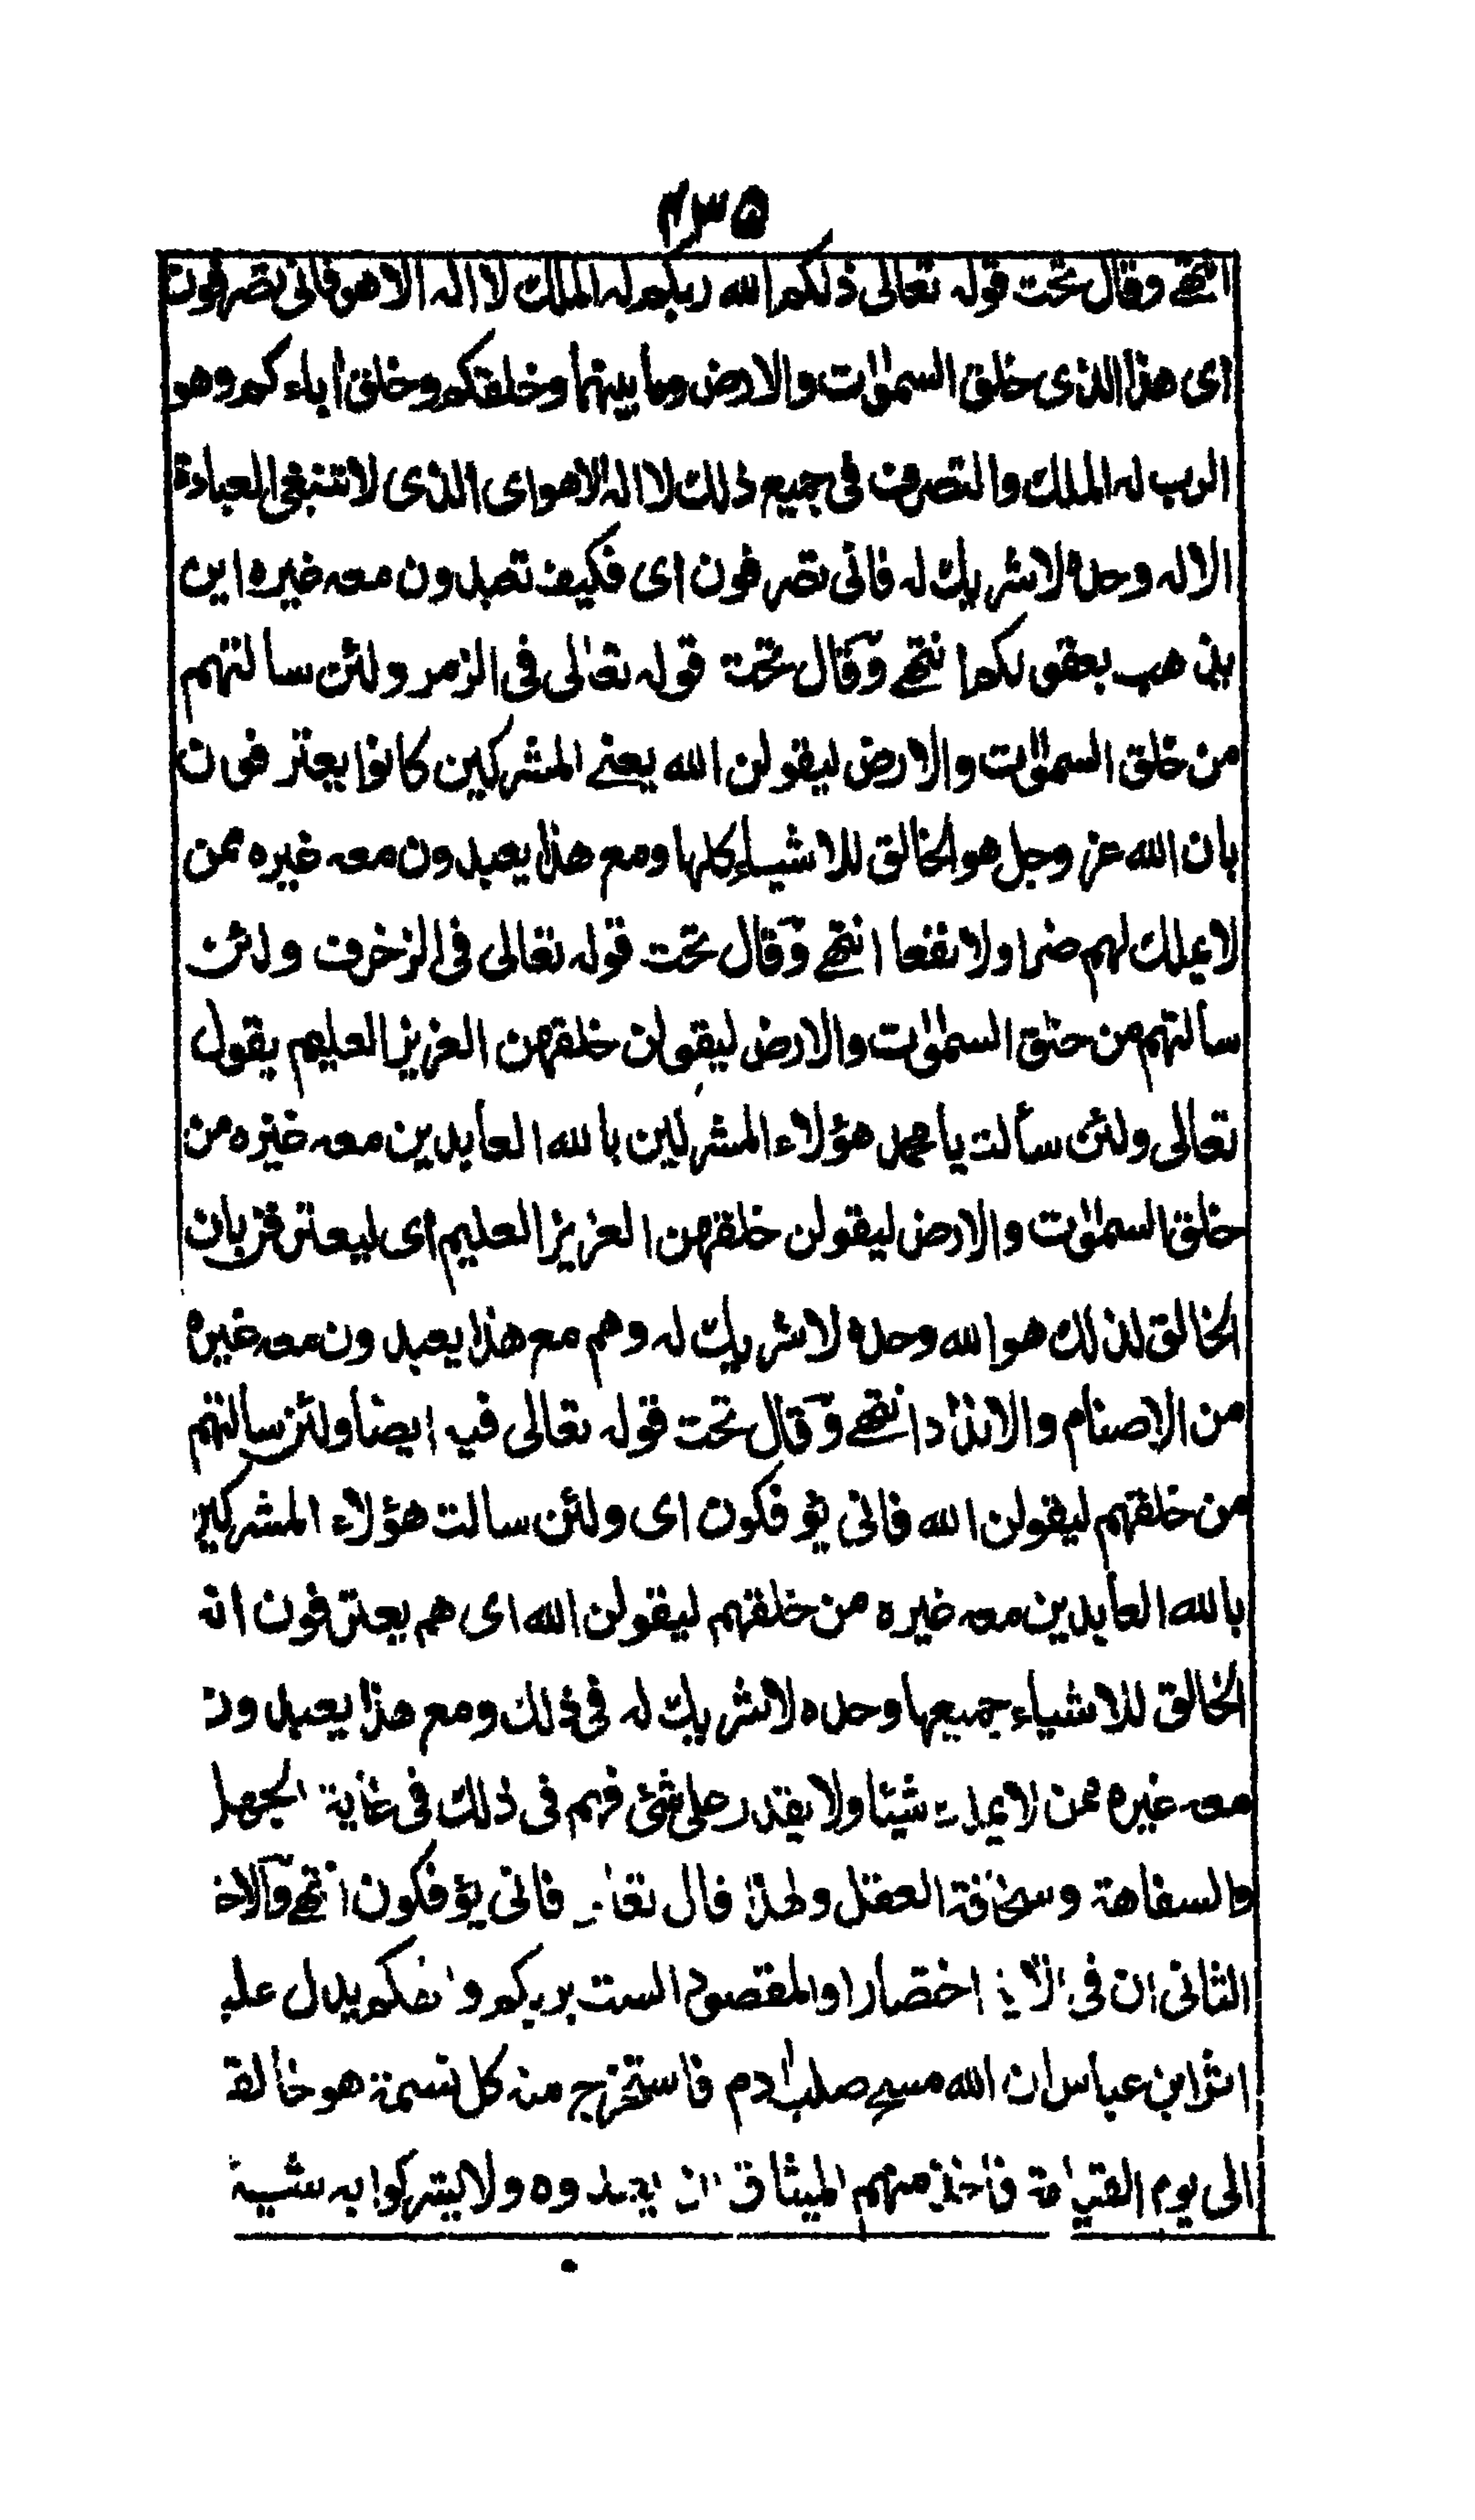 ٢٣٥
انتهى وقال تحت قوله تعالى ذلكم الله ربكم له الملك لا اله الا هو فانى تصرفون
اى هذا الذى خلق السموٰات والارض وما بينهما وخلقكم وخلق اٰباءكم وهو
الرب له الملك والتصرف فى جميع ذلك لا اله الا هو اى الذى لا تنبغى العبادة
الا له وحده لا شريك له فانى تصرفون اى فكيف تعبدون معه غيره اين
يذهب بعقولكم انتهى وقال تحت قوله تعالى فى الزمر ولئن سالتهم
من خلق السموٰات والارض ليقولن الله يعنى المشركين كانوا يعترفون
بان الله عز وجل هو الخالق للاشياء كلها ومع هذا يعبدون معه غيره ممن
لا يملك لهم ضرا ولا نفعا انتهى وقال تحت قوله تعالى فى الزخرف ولئن
سألتهم من خلق السموٰات والارض ليقولن خلقهن العزيز العليم يقول
تعالى ولئن سألت يا محمد هؤلاء المشركين بالله العابدين معه غيره من
خلق السموٰات والارض ليقولن خلقهن العزيز العليم اى ليعترفن بان
الخالق لذلك هو الله وحده لا شريك له وهم مع هذا يعبدون معه غيره
من الاصنام والانداد انتهى وقال تحت قوله تعالى فيه ايضا ولئن سالتهم
من خلقهم ليقولن الله فانى يؤفكون اى ولئن سالت هؤلاء المشركين
بالله العابدين معه غيره من خلقهم ليقولن الله اى هم يعترفون انه
الخالق للاشياء جميعها وحده لا شريك له فى ذلك ومع هذا يعبدون
معه غيره ممن لا يملك شيئا ولا يقدر على شئ فهم فى ذلك فى غاية الجهل
والسفاهة وسخافة العقل ولهذا قال تعالى فانى يؤفكون انتهى والامر
الثانى ان فى الآية اختصارا والمقصود الست بربكم والهكم يدل عليه
اثر ابن عباس ان الله مسح صلب اٰدم فاستخرج منه كل نسمة هو خالقها
الى يوم القيامة فاخذ منهم الميثاق ان يعبدوه ولا يشركوا به شيئا